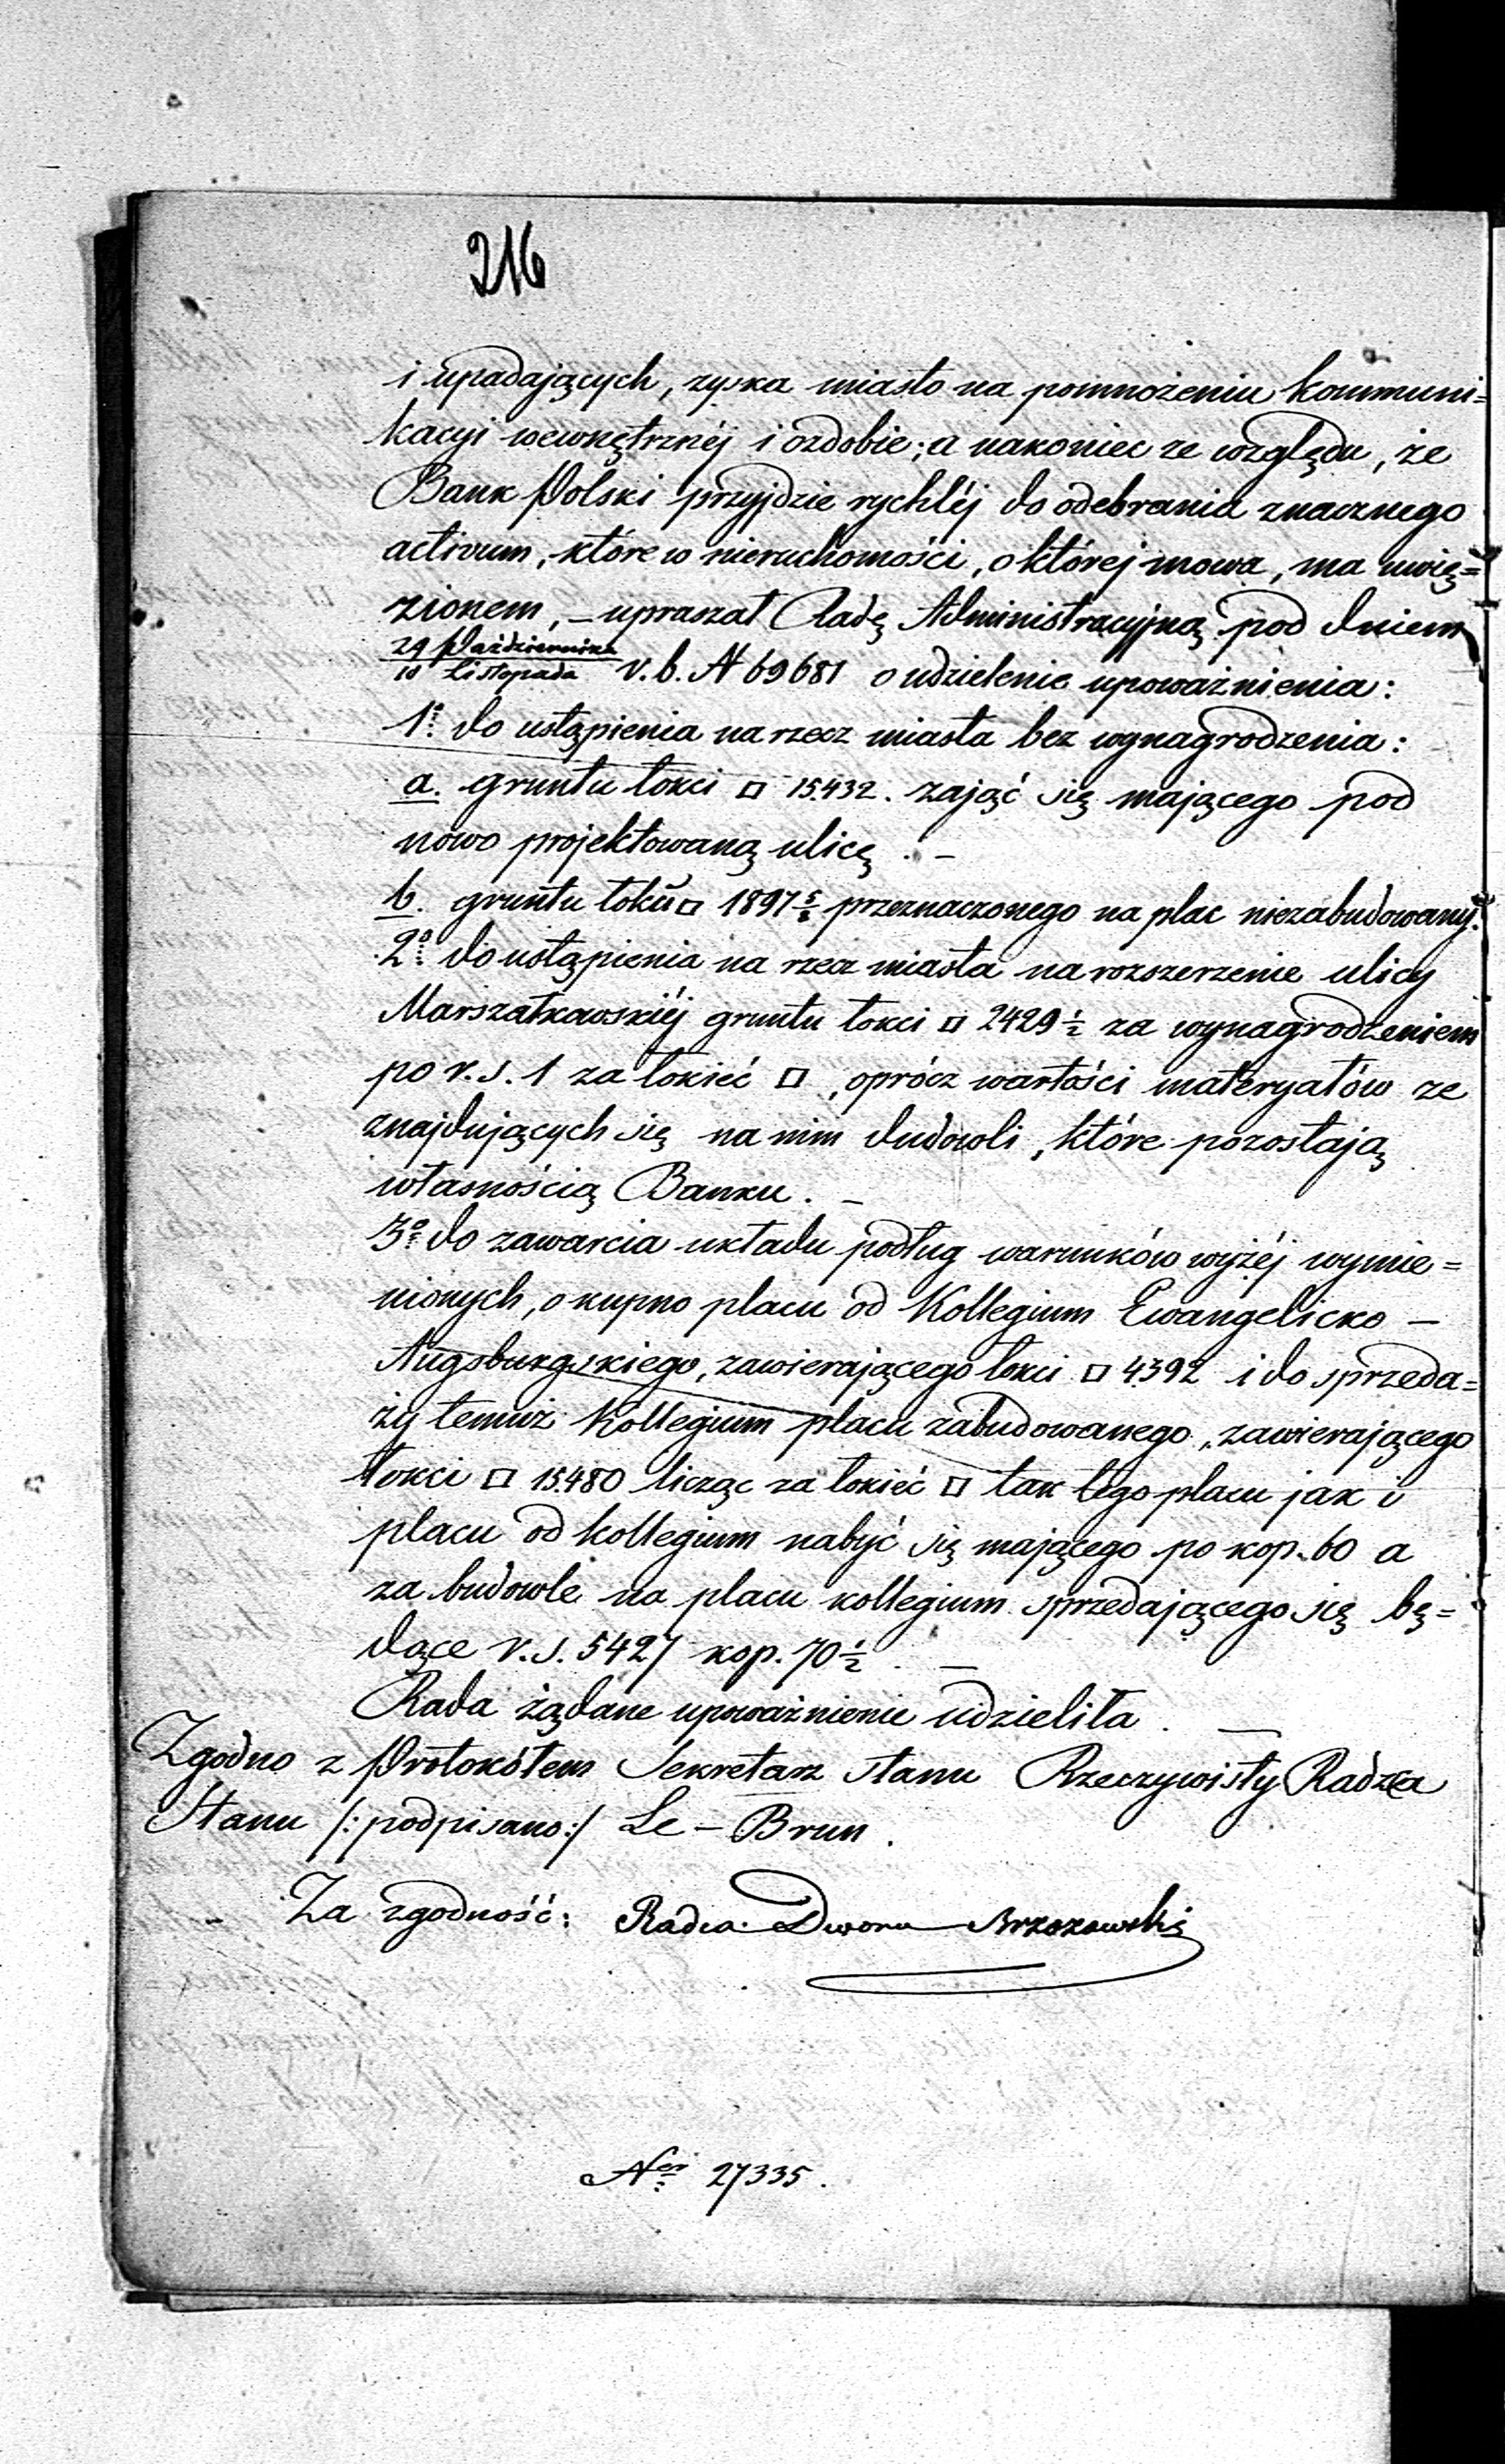 216
i upadających, zyska miasto na pomnożeniu kommuni=
kacyi wewnętrznéj i ozdobie; a nakoniec ze względu, że
Bank Polski przyjdzie rychléj do odebrania znacznego
activum, które w nieruchomości, o której mowa, ma uwię=
zionem, – upraszał Radę Administracyjną pod dniem
29 Października / 10 Listopada r. b. N 69681 o udzielenie upoważnienia:
1º do ustąpienia na rzecz miasta bez wynagrodzenia:
a. gruntu łokci □ 15.432. zająć się mającego pod
nowo projektowaną ulicę. –
b. gruntu łokci □ 1897 przeznaczonego na plac niezabudowany.
2º do ustąpienia na rzecz miasta na rozszerzenie ulicy
Marszałkowskiéj gruntu łokci □ 2429 ½ za wynagrodzeniem
po r. s. 1 za łokieć □, oprócz wartości materyałów ze
znajdujących się na nim budowli, które pozostają
własnością Banku. –
3º do zawarcia układu podług warunków wyżéj wymie=
nionych, o kupno placu od Kollegium Ewangelicko –
Augsburgskiego, zawierającego łokci □ 4392 i do sprzeda=
ży temuż Kollegium placu zabudowanego, zawierającego
łokci □ 15.480 licząc za łokieć □ tak tego placu jak i
placu od kollegium nabyć się mającego po kop. 60 a
za budowle na placu kollegium sprzedającego się bę=
dące r. s. 5427 kop. 70 ½. –
Rada żądane upoważnienie udzieliła. –
Zgodno z Protokółem Sekretarz Stanu Rzeczywisty Radzca
Stanu /: podpisano:/ Le – Brun.
Za zgodność: Radca Dworu Brzozowski
Nr 27335.